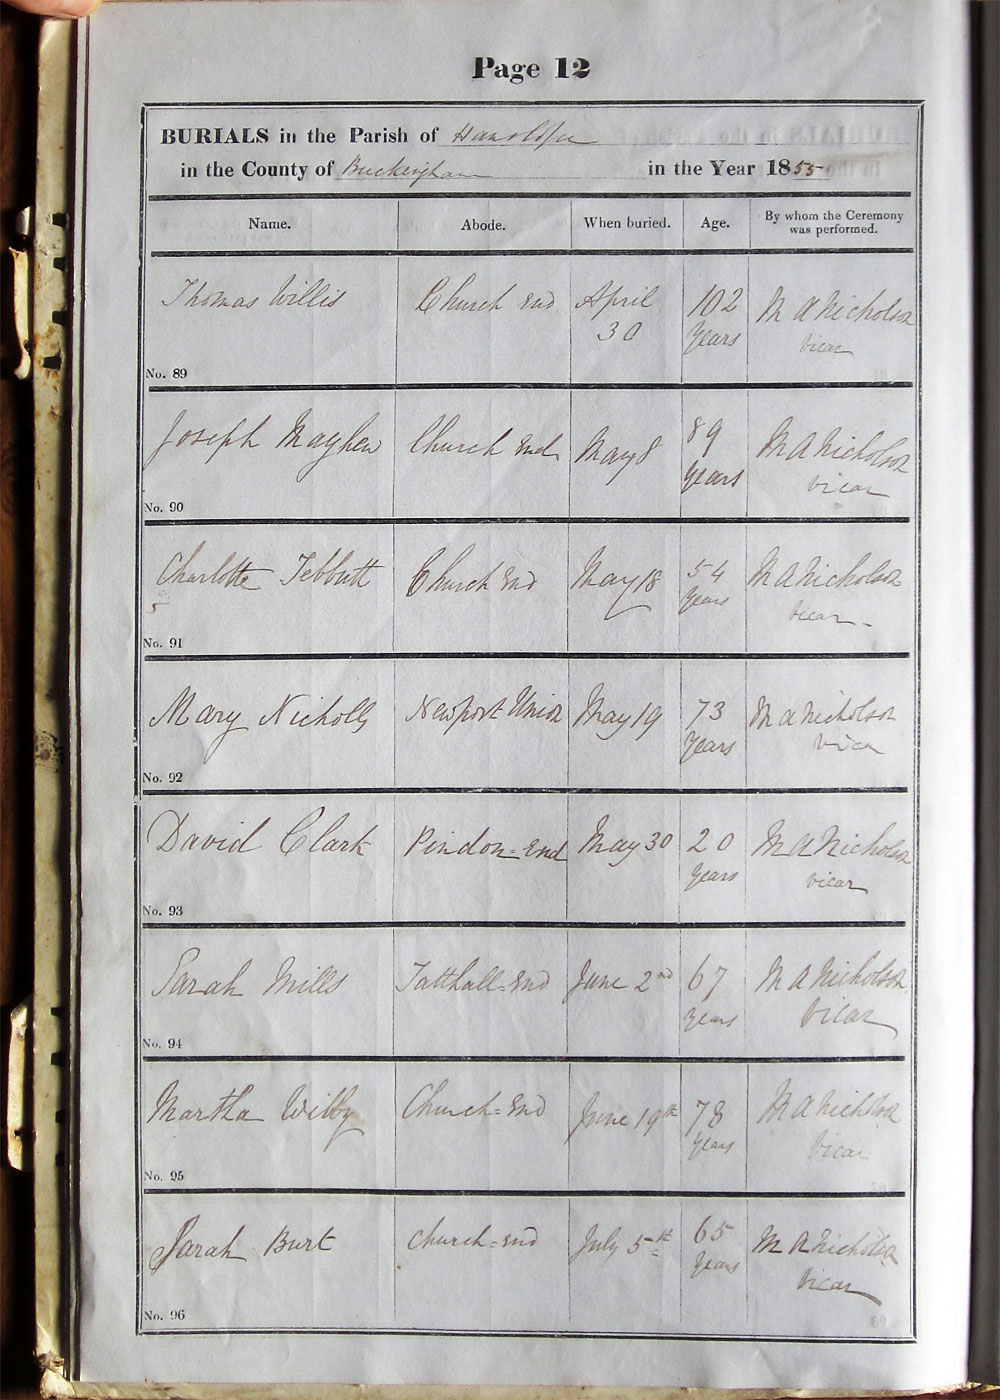 Page 12
BURIALS in the Parish of Hanslope
in the County of Buckingham in the Year 1855
Name. Abode. When buried. Age. By whom the Ceremony was performed.
Thomas Willis Church End April 30 102 Years M A Nicholson Vicar
No. 89
Joseph Mayhew Church End May 8 89 Years M A Nicholson Vicar
No. 90
Charlotte Tebbutt Church End May 18 54 Years M A Nicholson Vicar
No. 91
Mary Nicholls Newport Union May 19 73 Years M A Nicholson Vicar
No. 92
David Clark Pindon=End May 30 20 Years M A Nicholson Vicar
No. 93
Sarah Mills Tatthall=End June 2nd 67 Years M A Nicholson Vicar
No. 94
Martha Wilby Church=End June 19th 78 Years M A Nicholson Vicar
No. 95
Sarah Burt Church=End July 5th 65 Years M A Nicholson Vicar
No. 96